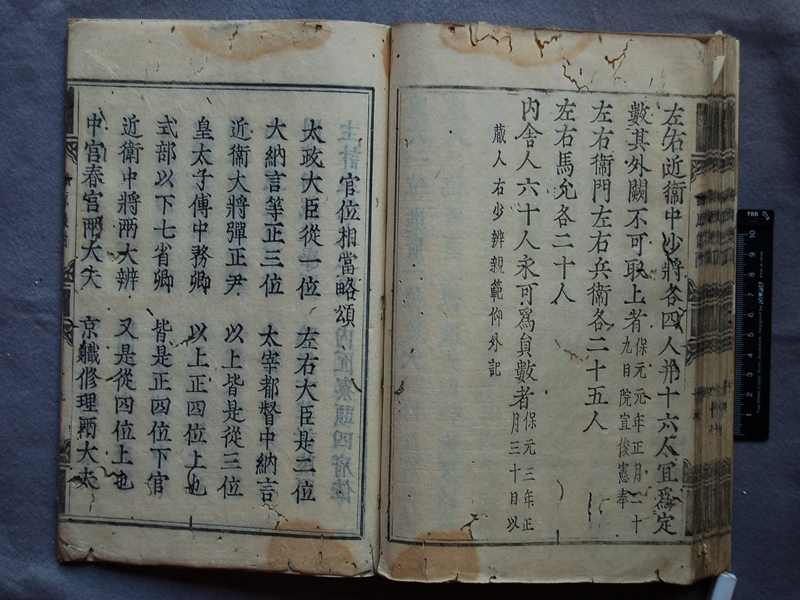 左右近衞中少將各四人并十六人宜爲定
數其外闕不可取上者保元元年正月二十
九日院宜俊憲奉
左右衞門左右兵衞各二十五人
左右馬允各二十人
内舎人六十人永可爲員數者保元三年正
月三十日以
蔵人右少辨親範仰外記
官位相當略頌
太政大臣從一位 左右大臣是二位
大納言等正三位 太宰都督中納言
近衞大將彈正尹 以上皆是從三位
皇太子傅中務卿 以上正四位上也
式部以下七省卿 皆是正四位下官
近衞中將兩大辨 又是從四位上也
中宮春宮兩大夫 京職修理兩大夫